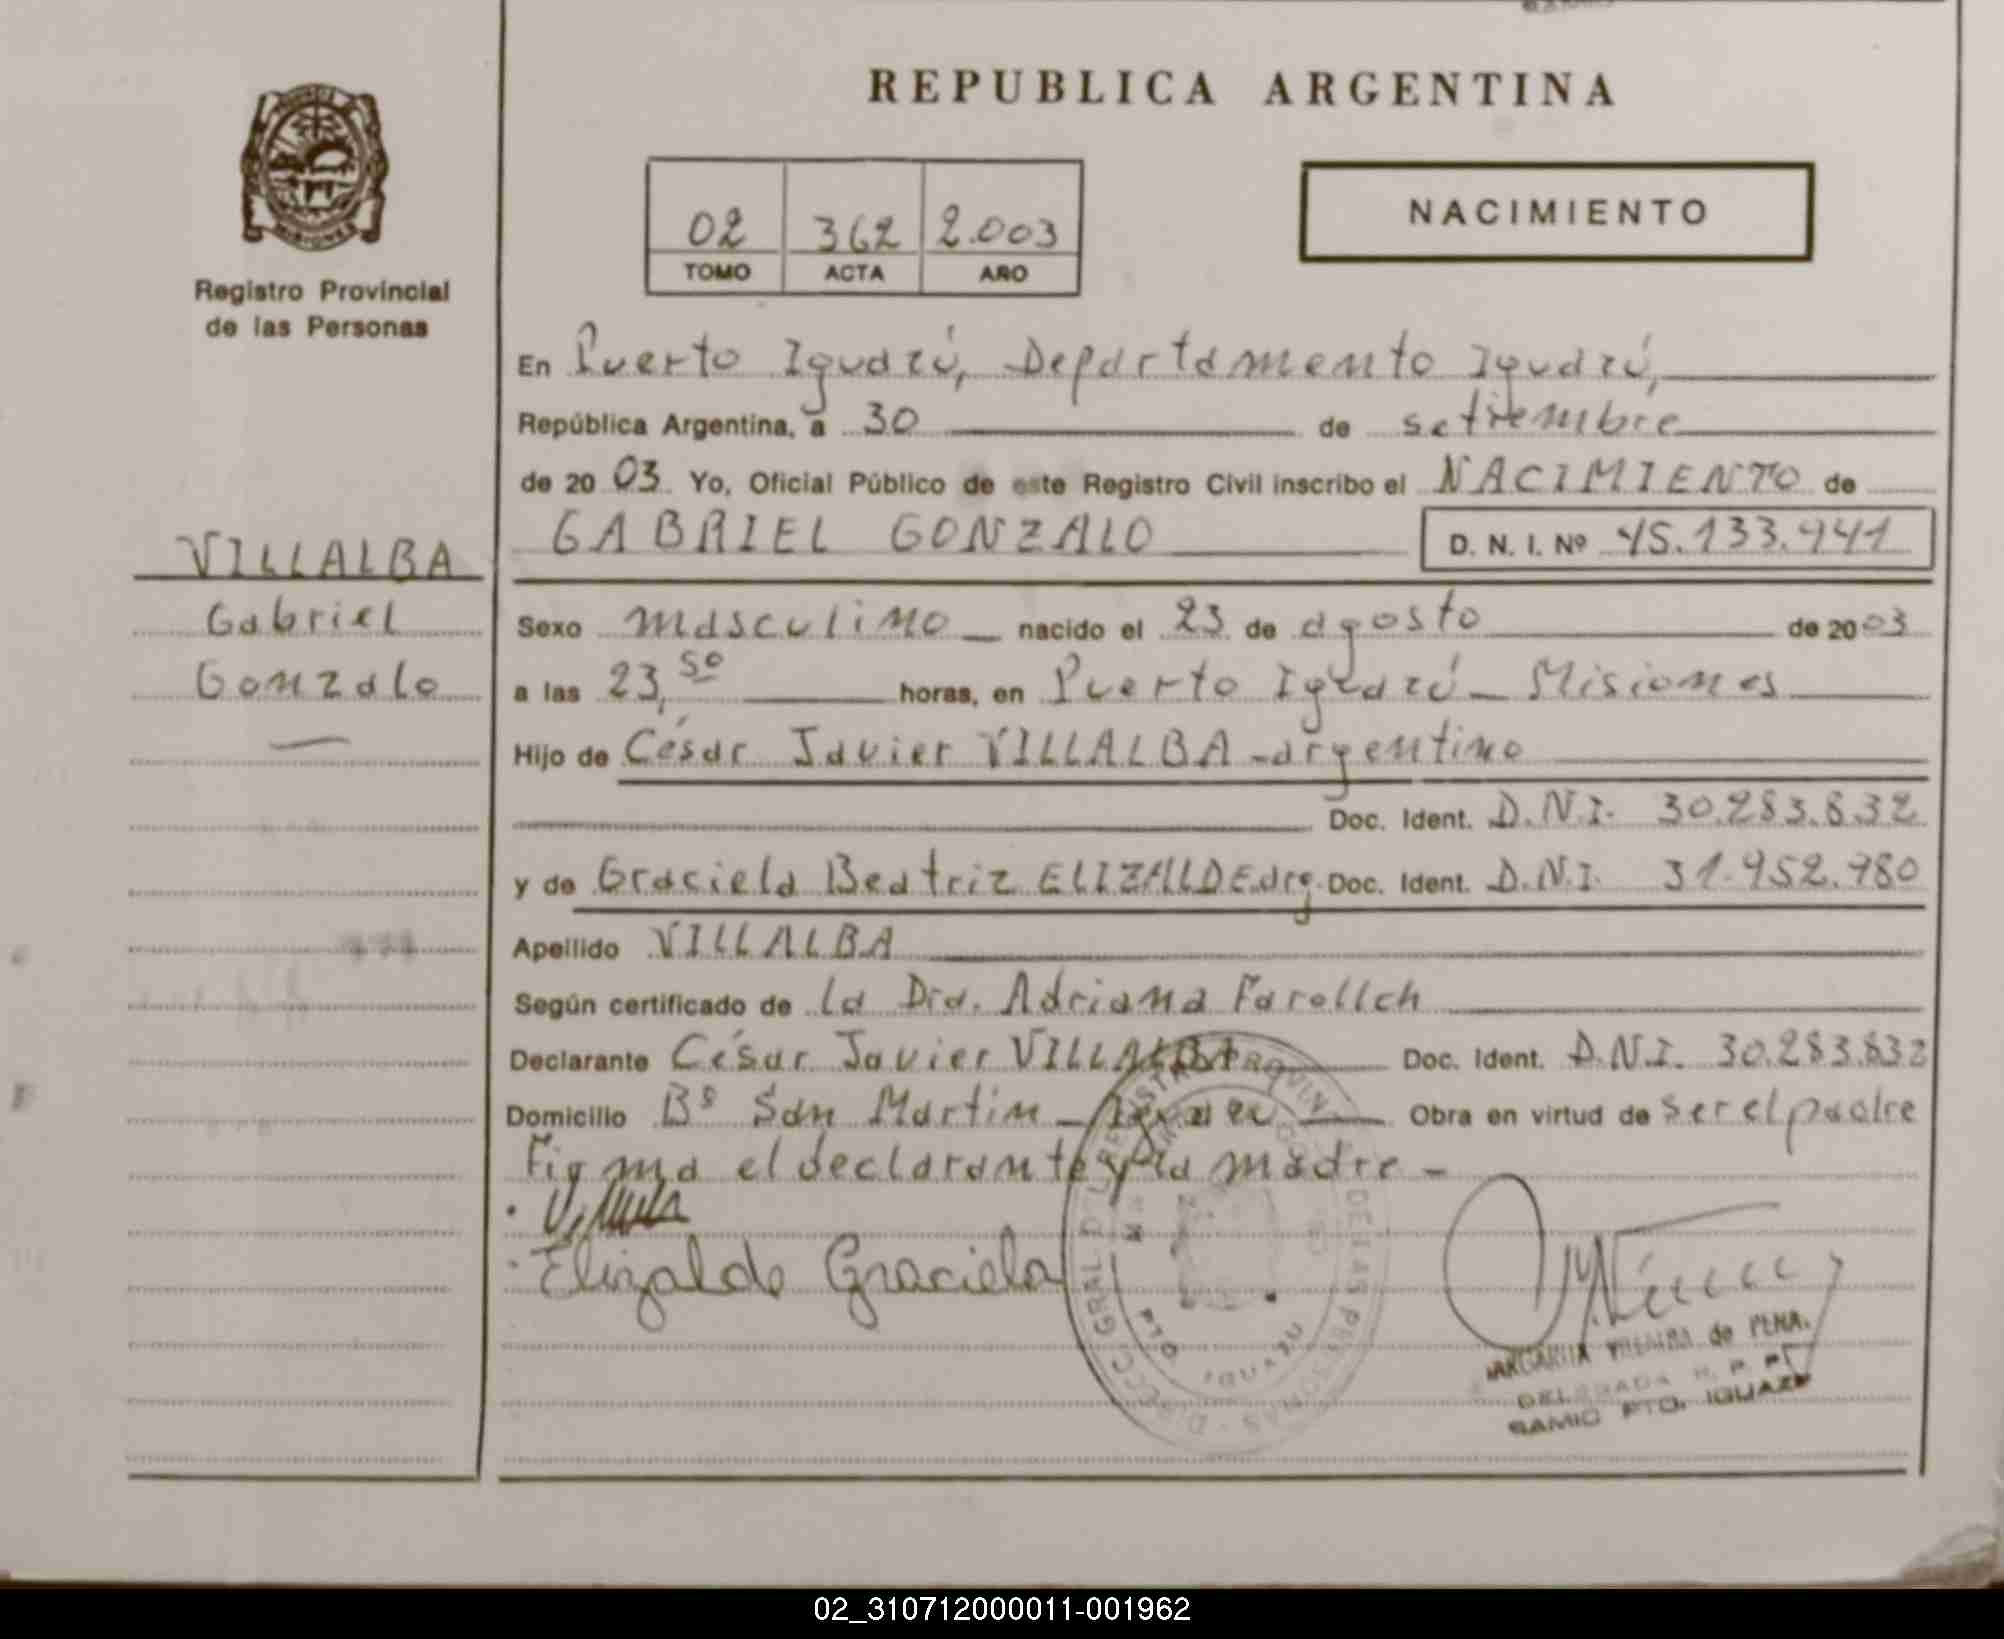 REPUBLICA ARGENTINA
MISIONES
Registro Provincial
de las Personas
02 362 2.003
TOMO ACTA AÑO
NACIMIENTO
En Puerto Iguazú, Departamento Iguazú,
República Argentina, a 30 de setiembre
de 20 03 Yo, Oficial Público de este Registro Civil inscribo el NACIMIENTO de
GABRIEL GONZALO D. N. I. Nº 45.133.941
VILLALBA
Gabriel
Gonzalo
Sexo masculino nacido el 23 de agosto de 20 03
a las 23,50 horas, en Puerto Iguazú - Misiones
Hijo de César Javier VILLALBA - argentino
Doc. Ident. D.N.I. 30.283.832
y de Graciela Beatriz ELIZALDE arg. Doc. Ident. D.N.I. 31.952.980
Apellido VILLALBA
Según certificado de la Dra. Adriana
Declarante César Javier VILLALBA Doc. Ident. D.N.I. 30.283.832
Domicilio Bº San Martin - Iguazú Obra en virtud de ser el padre
Firma el declarante y la madre -
Elizalde Graciela
de PENA.
DELEGADA R. P. P.
SAMIC PTO. IGUAZU
02_310712000011-001962